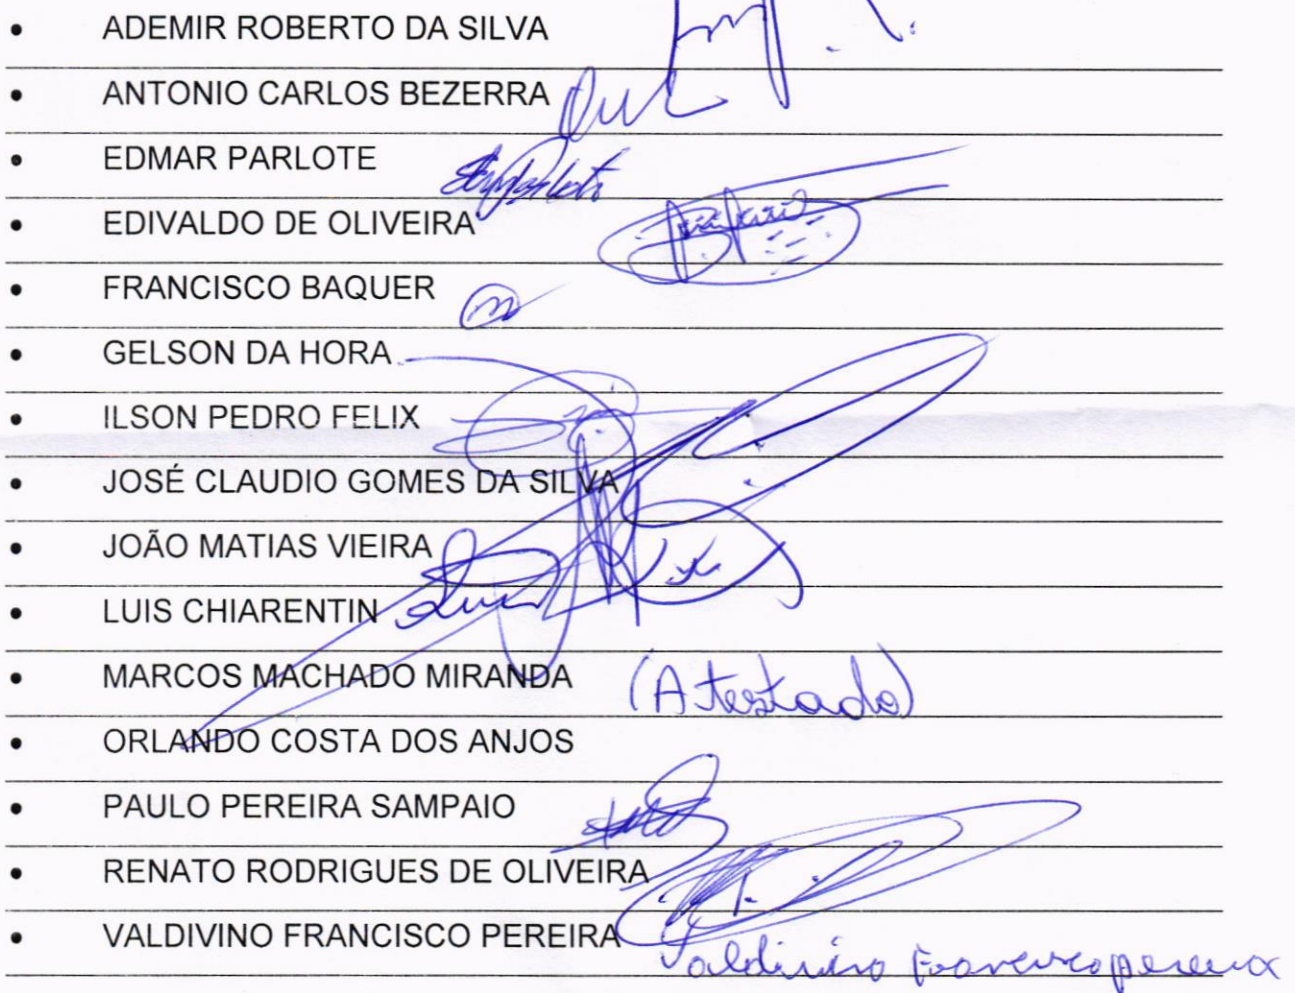 • ADEMIR ROBERTO DA SILVA
• ANTONIO CARLOS BEZERRA
• EDMAR PARLOTE
• EDIVALDO DE OLIVEIRA
• FRANCISCO BAQUER
• GELSON DA HORA
• ILSON PEDRO FELIX
• JOSÉ CLAUDIO GOMES DA SILVA
• JOÃO MATIAS VIEIRA
• LUIS CHIARENTIN
• MARCOS MACHADO MIRANDA (Atestado)
• ORLANDO COSTA DOS ANJOS
• PAULO PEREIRA SAMPAIO
• RENATO RODRIGUES DE OLIVEIRA
• VALDIVINO FRANCISCO PEREIRA
Valdivino Francisco pereira